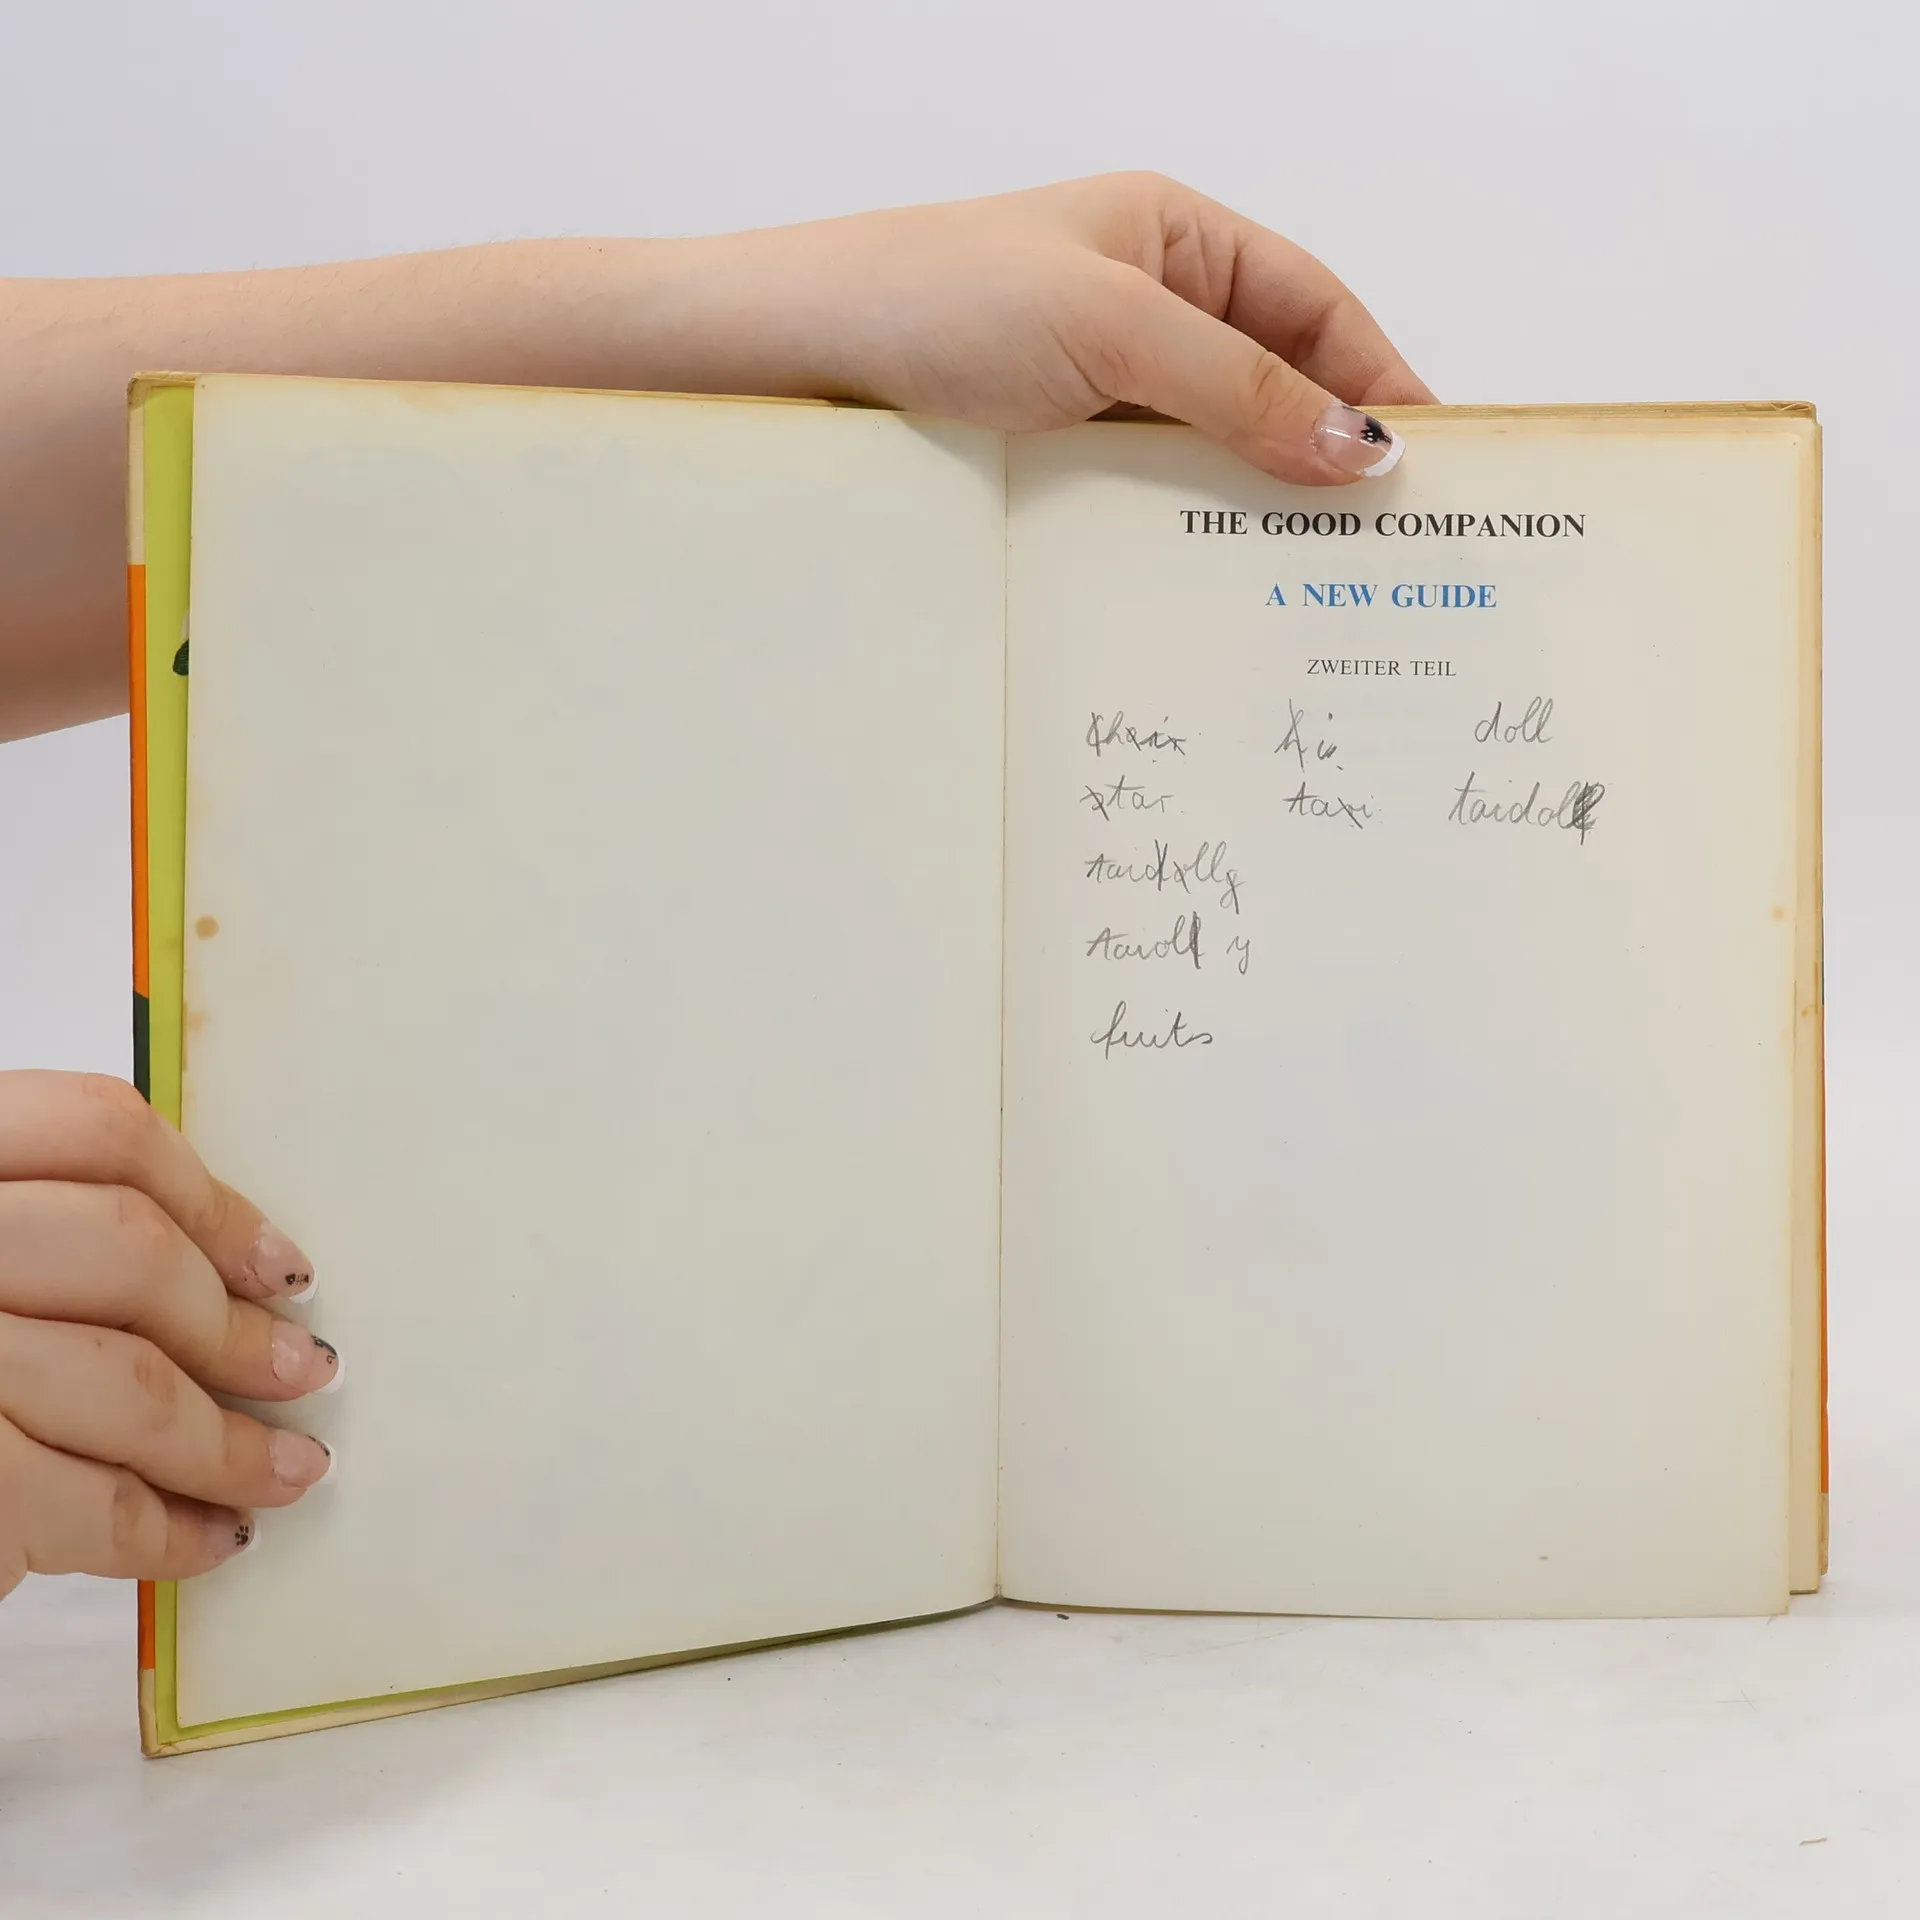 THE GOOD COMPANION
A NEW GUIDE
ZWEITER TEIL
chair hi doll
star taxi taidoll
taidolly
taidl y
fuits